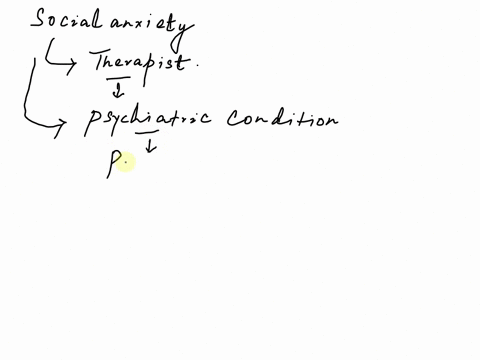 Social anxiety
Therapist.
psychiatric condition
P